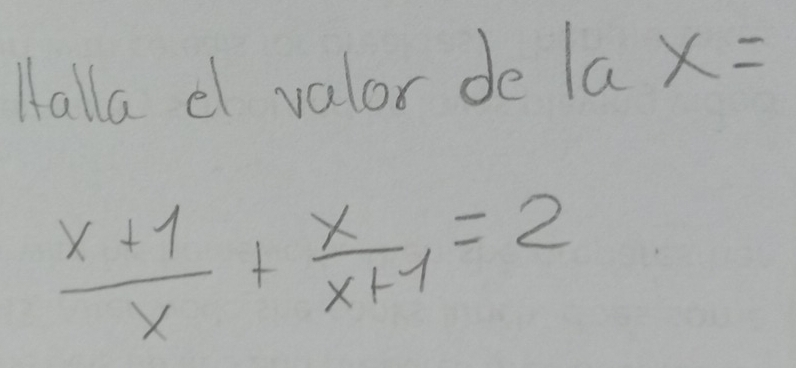 Halla el valor de la x =
x+1/x + x/x+1 = 2